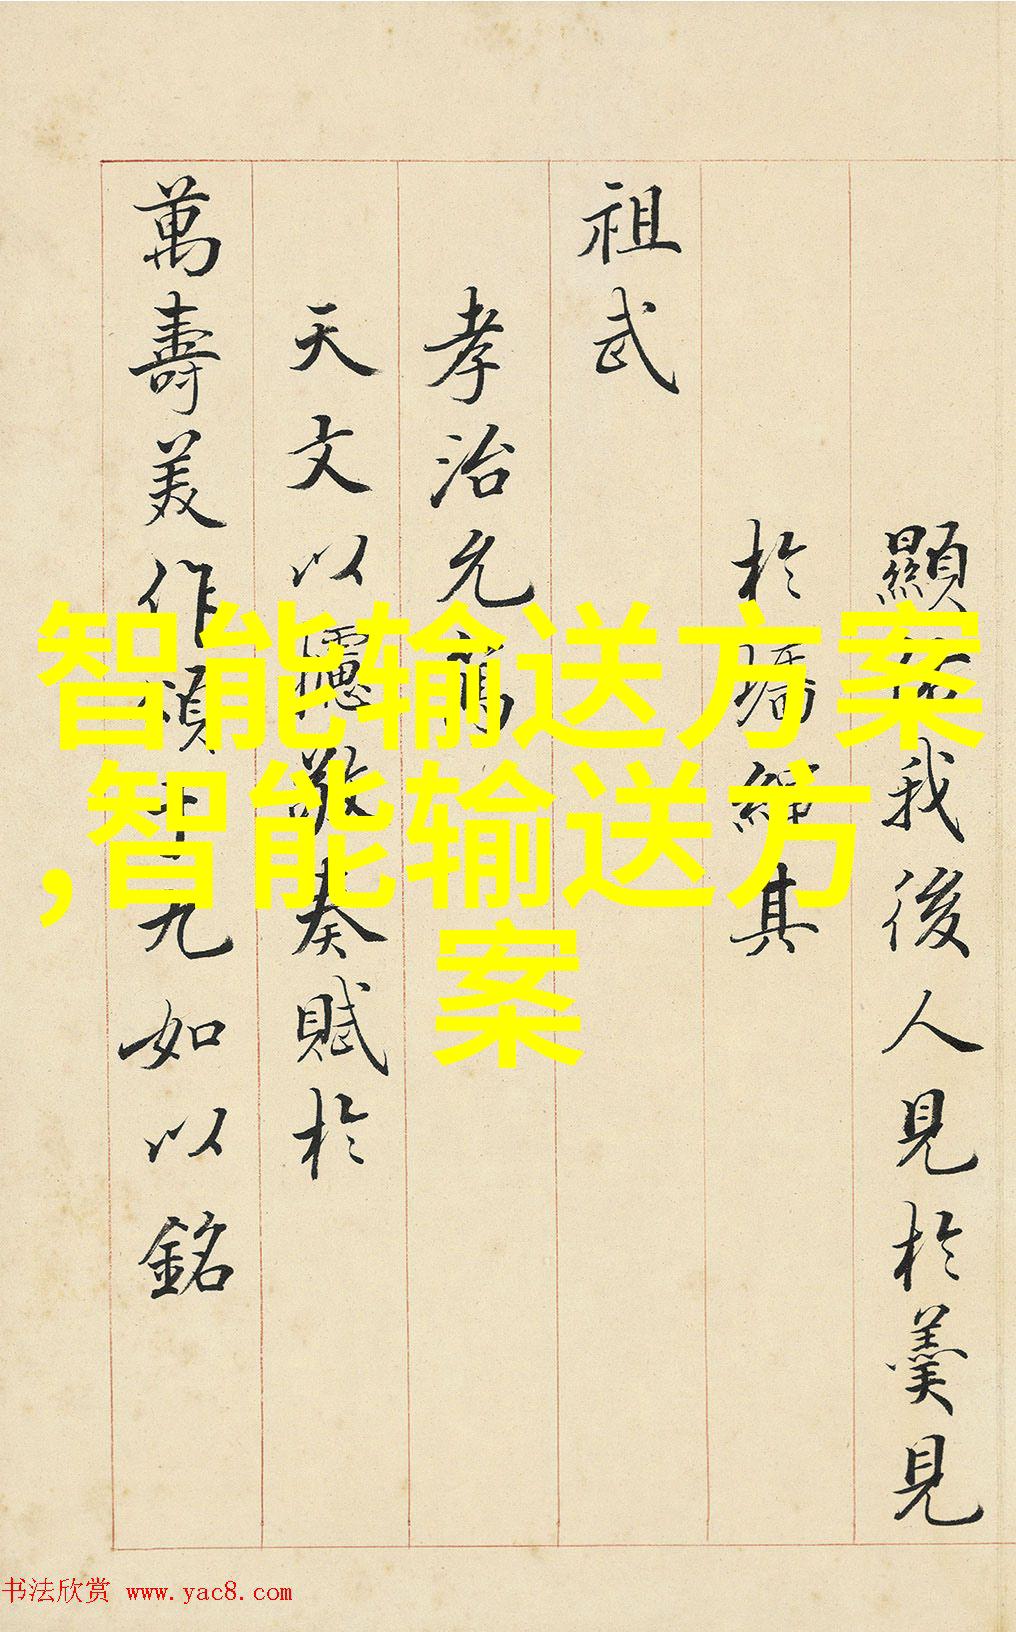 顯我後人見於羹見
於墻繩其
祖武
孝治允
天文以攄敬奏賦於
萬壽美作頌九如以銘
智能输送方案
,智能输送方
案
书法欣赏 www.yac8.com